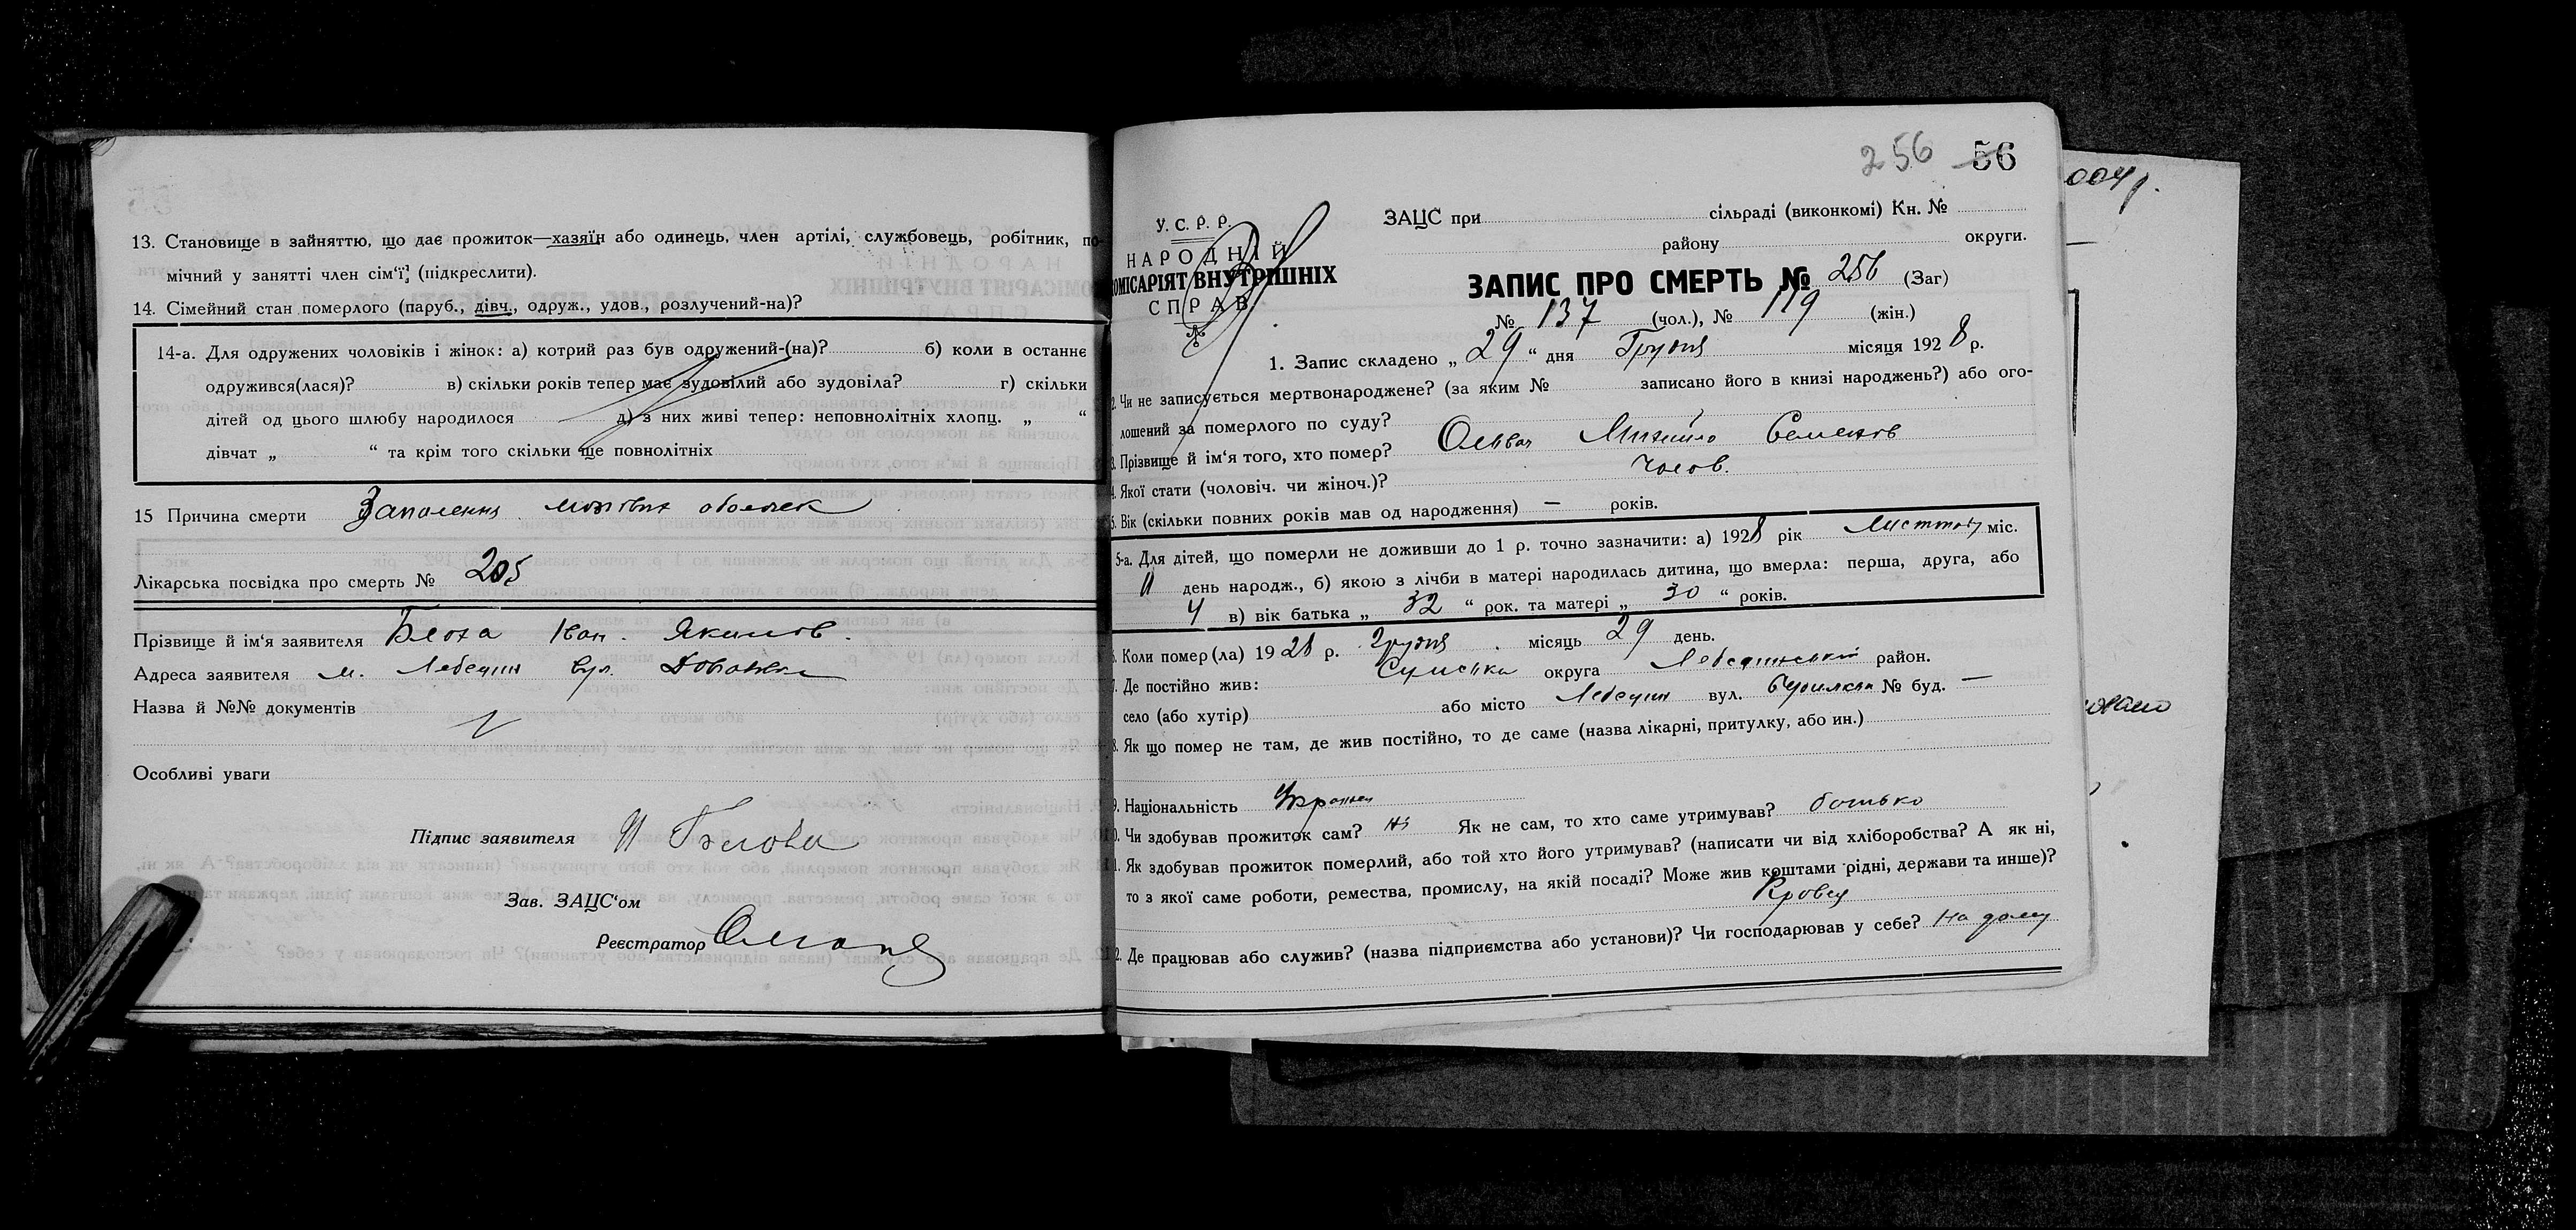 13. Становище в зайняттю, що дає прожиток—хазяїн або одинець, член артілі, службовець, робітник, по-
мічний у занятті член сім'ї, (підкреслити).
14. Сімейний стан померлого (паруб., дівч., одруж., удов., розлучений-на)?
14-а. Для одружених чоловіків і жінок: а) котрий раз був одружений-(на)? б) коли в останнє
одружився(лася)? в) скільки років тепер має зудовілий або зудовіла? г) скільки
дітей од цього шлюбу народилося д) з них живі тепер: неповнолітніх хлопц. „ “
дівчат „ “ та крім того скільки ще повнолітніх
15 Причина смерти Запалення мозгових оболочек
Лікарська посвідка про смерть № 205
Прізвище й ім'я заявителя Іван Якимов.
Адреса заявителя м. Лебедин вул.
Назва й №№ документів
Особливі уваги
Підпис заявителя
Зав. ЗАЦС'ом
Реєстратор
256 56
У. С. Р. Р.
НАРОДНІЙ
КОМІСАРІЯТ ВНУТРІШНІХ
СПРАВ
ЗАЦС при сільраді (виконкомі) Кн. №
району округи.
ЗАПИС ПРО СМЕРТЬ № 256 (Заг)
№ 137 (чол.), № 119 (жін.)
1. Запис складено „ 29 “ дня Грудня місяця 1928 р.
2. Чи не записується мертвонароджене? (за яким № записано його в книзі народжень?) або ого-
лошений за померлого по суду?
3. Прізвище й ім'я того, хто помер? Михайло Семенов
4. Якої стати (чоловіч. чи жіноч.)? Чолов.
5. Вік (скільки повних років мав од народження) — років.
5-а. Для дітей, що померли не доживши до 1 р. точно зазначити: а) 1928 рік Листопад міс.
11 день народж., б) якою з лічби в матері народилась дитина, що вмерла: перша, друга, або
4 в) вік батька „ 32 “ рок. та матері „ 30 “ років.
6. Коли помер(ла) 1928 р. Грудня місяць 29 день.
7. Де постійно жив: Сумська округа Лебединський район.
село (або хутір) або місто Лебедин вул. № буд. —
8. Як що помер не там, де жив постійно, то де саме (назва лікарні, притулку, або ин.)
9. Національність
10. Чи здобував прожиток сам? ні Як не сам, то хто саме утримував? батько
11. Як здобував прожиток померлий, або той хто його утримував? (написати чи від хліборобства? А як ні,
то з якої саме роботи, ремества, промислу, на якій посаді? Може жив коштами рідні, держави та инше)?
Кровец
12. Де працював або служив? (назва підприємства або установи)? Чи господарював у себе? На дому